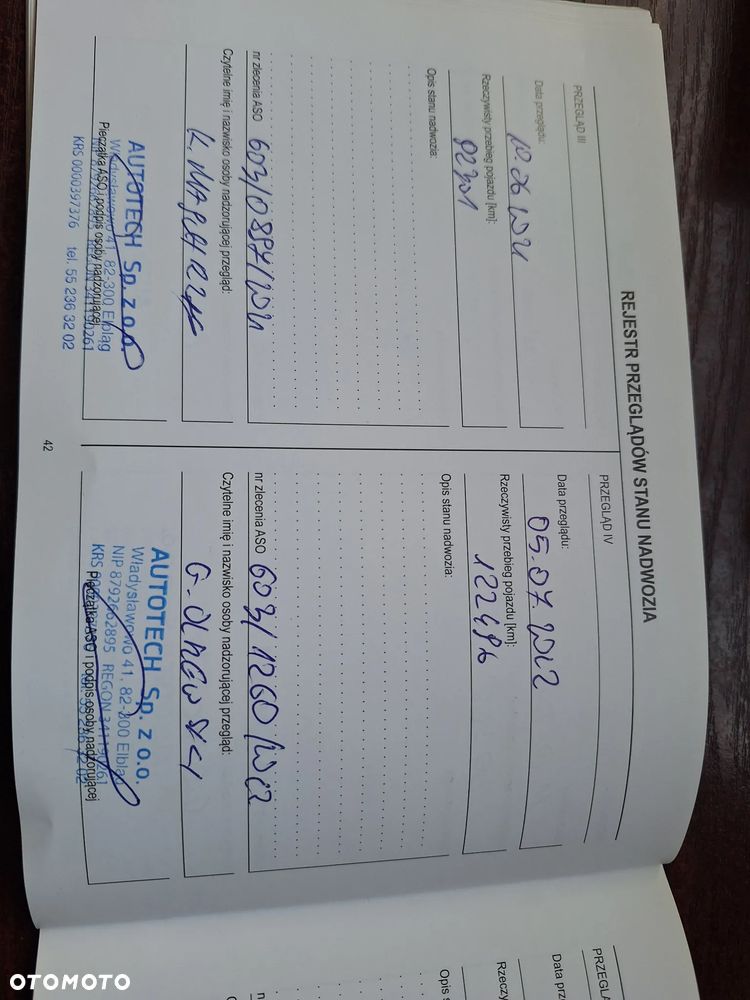 REJESTR PRZEGLĄDÓW STANU NADWOZIA
PRZEGLĄD III
Data przeglądu:
10.06.2021
Rzeczywisty przebieg pojazdu [km]:
92301
Opis stanu nadwozia:
nr zlecenia ASO 603/0897/2021
Czytelne imię i nazwisko osoby nadzorującej przegląd:
AUTOTECH Sp. z o.o.
Władysławowo 41, 82-300 Elbląg
KRS 0000397376 tel. 55 236 32 02
Pieczątka ASO i podpis osoby nadzorującej
PRZEGLĄD IV
Data przeglądu:
05.07.2022
Rzeczywisty przebieg pojazdu [km]:
122496
Opis stanu nadwozia:
nr zlecenia ASO 603/1260/2022
Czytelne imię i nazwisko osoby nadzorującej przegląd:
G. OLNEWSKI
AUTOTECH Sp. z o.o.
Władysławowo 41, 82-300 Elbląg
NIP 8792662895 REGON 341190261
Pieczątka ASO i podpis osoby nadzorującej
42
PRZEGLĄD
Data prz
Rzeczy
Opis s
OTOMOTO